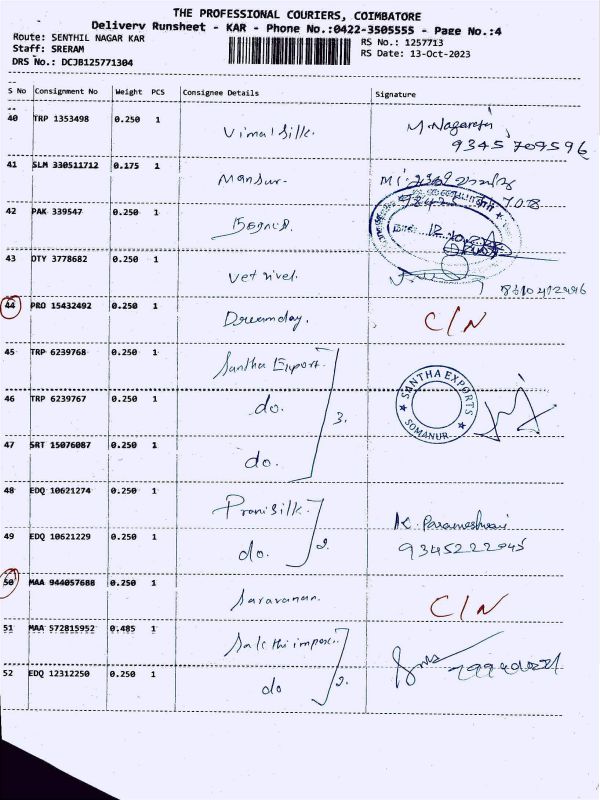 THE PROFESSIONAL COURIERS, COIMBATORE
Delivery Runsheet - KAR - Phone No.:0422-3505555 - Page No.:4
Route: SENTHIL NAGAR KAR
RS No.: 1257713
Staff: SRERAM
RS Date: 13-Oct-2023
DRS No.: DCJB125771304
S No Consignment No Weight PCS Consignee Details Signature
40 TRP 1353498 0.250 1 Vimal Silk. M. Nagaraj
9345 709596
41 SLM 330511712 0.175 1 Mansur
42 PAK 339547 0.250 1
43 OTY 3778682 0.250 1 Vetrivel
44 PRO 15432492 0.250 1 Dreamday. C/N
45 TRP 6239768 0.250 1 Santha Export.
46 TRP 6239767 0.250 1 do. 3. SANTHA EXPORTS SOMANUR
47 SRT 15076087 0.250 1 do.
48 EDQ 10621274 0.250 1 Pranisilk. K. Parameshwari
49 EDQ 10621229 0.250 1 do. 2. 9345222045
50 MAA 944057688 0.250 1 Saravanan. C/N
51 MAA 572815952 0.485 1 Sakthi
52 EDQ 12312250 0.250 1 do 2.